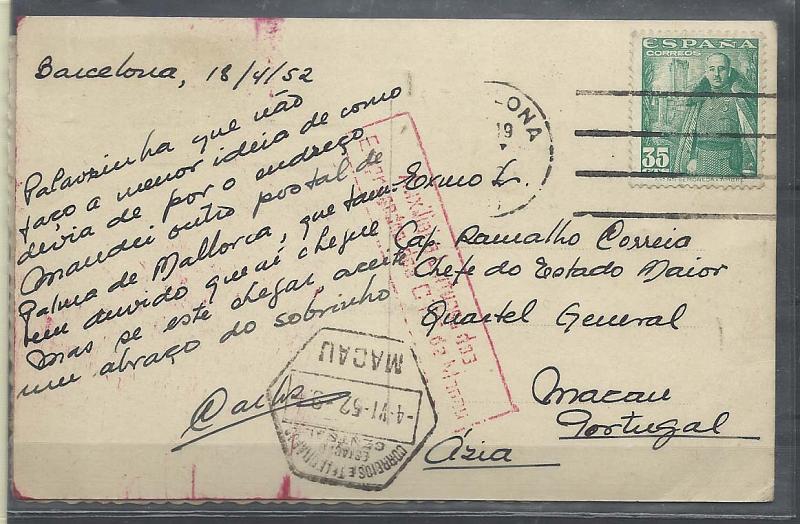 Barcelona, 18/4/52
Palavrinha que não
faço a menor ideia de como
devia de por o endreço
Mandei outro postal de
Palma de Mallorca, que tam-
bem duvido que aí chegue
Mas se este chegar, aceite
um abraço do sobrinho
Carlos
ESPAÑA
CORREOS
35
CTS
LONA
19
Exmo Sr.
Cap Ramalho Correia
Chefe do Estado Maior
Quartel General
Macau
Portugal
Ásia
MACAU
-4.VI.52
CORREIOS E TELEGRAFOS
CENTRAL